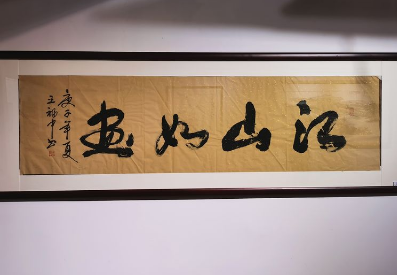 江山如画
庚子年夏
王福中书